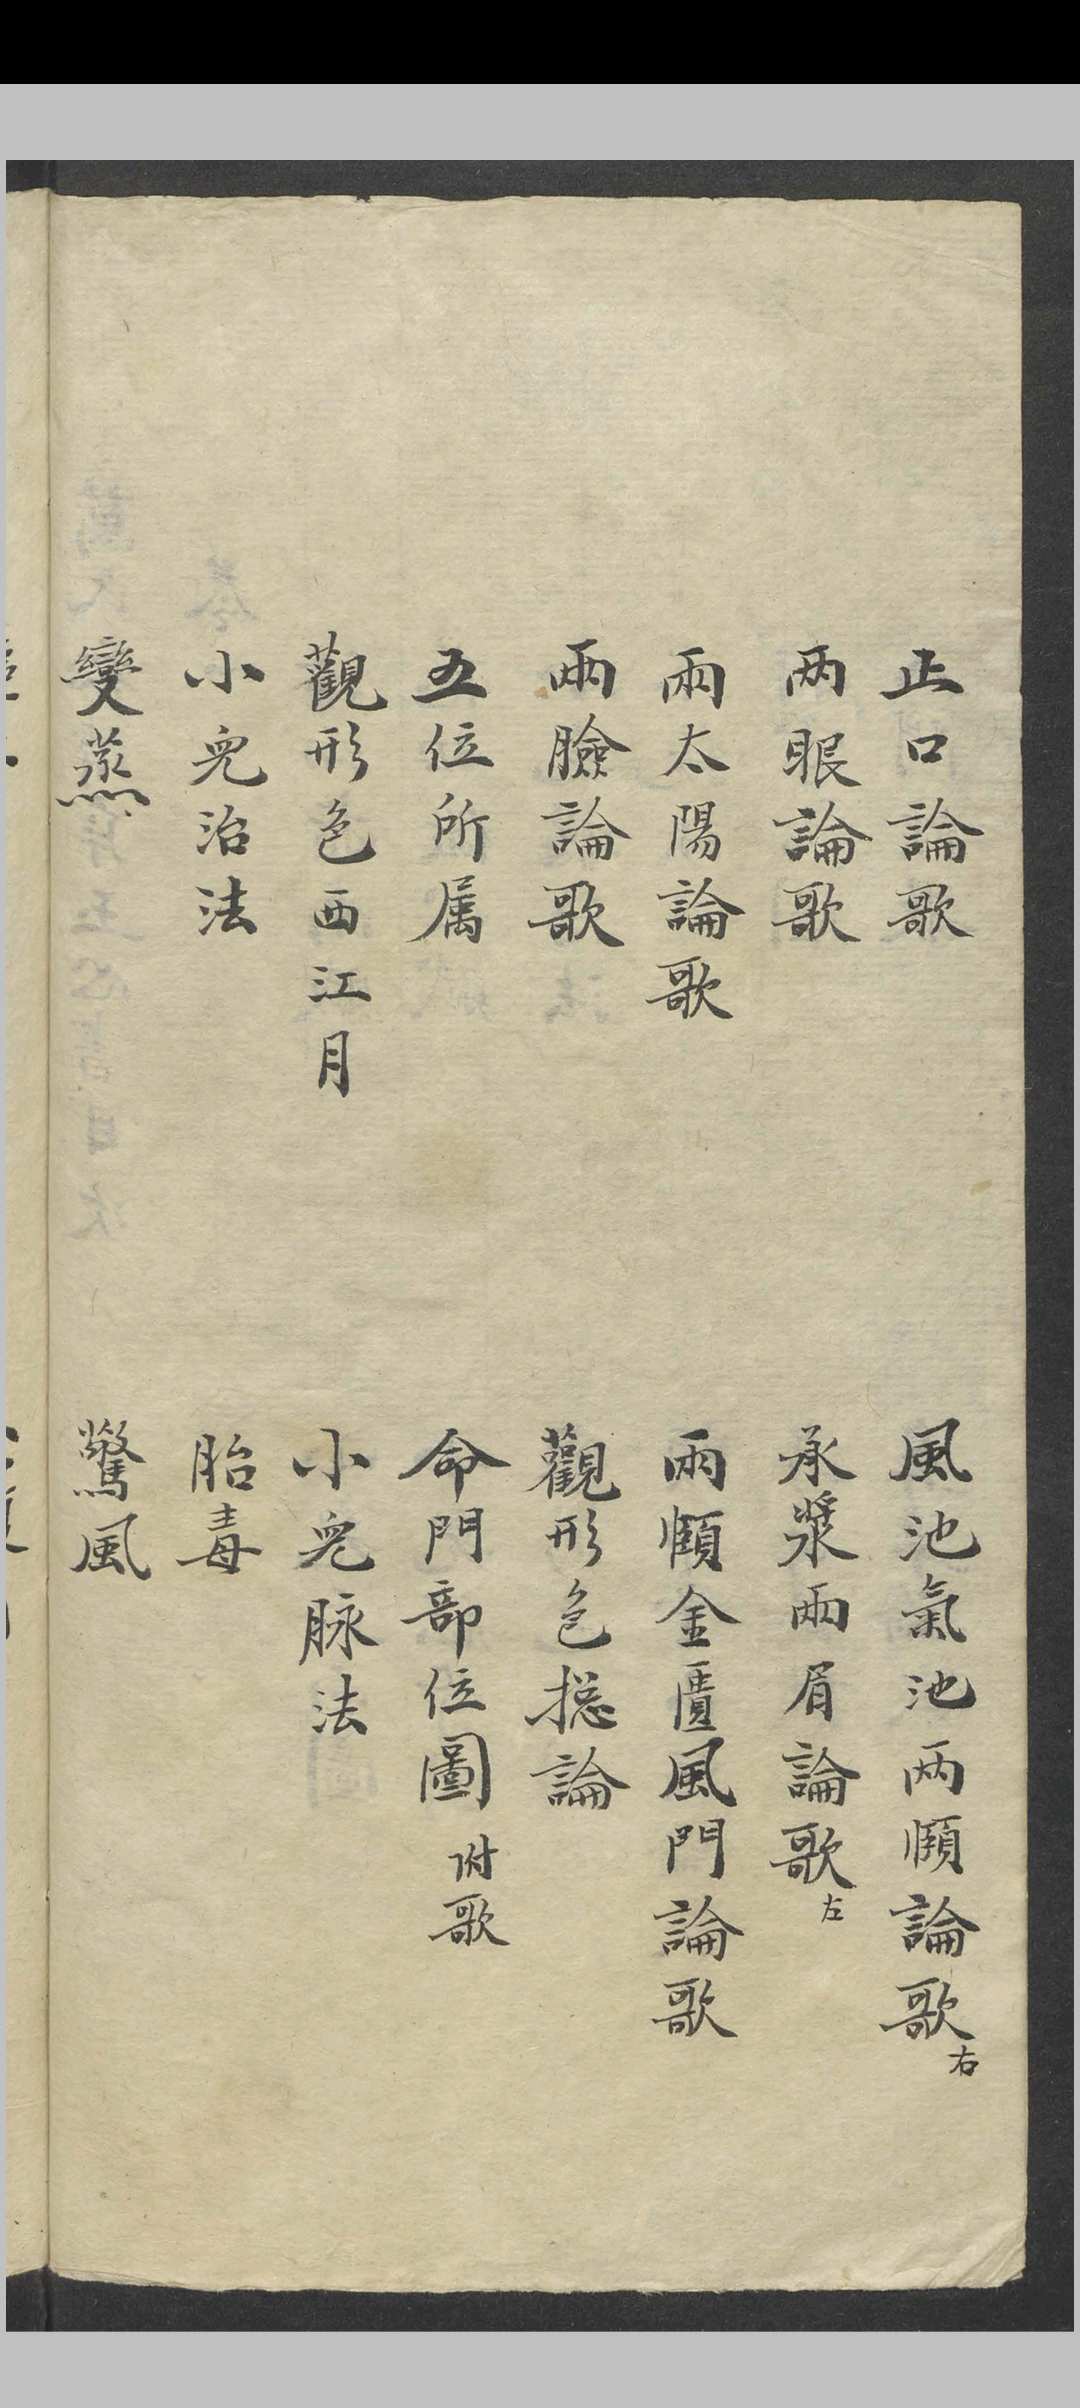 正口論歌
風池氣池两頥論歌右
两眼論歌
承漿兩眉論歌左
兩太陽論歌
兩頥金匱風門論歌
兩臉論歌
觀形色捴論
五位所属
命門部位圖附歌
觀形色西江月
小兒脉法
小兒治法
胎毒
變蒸
驚風